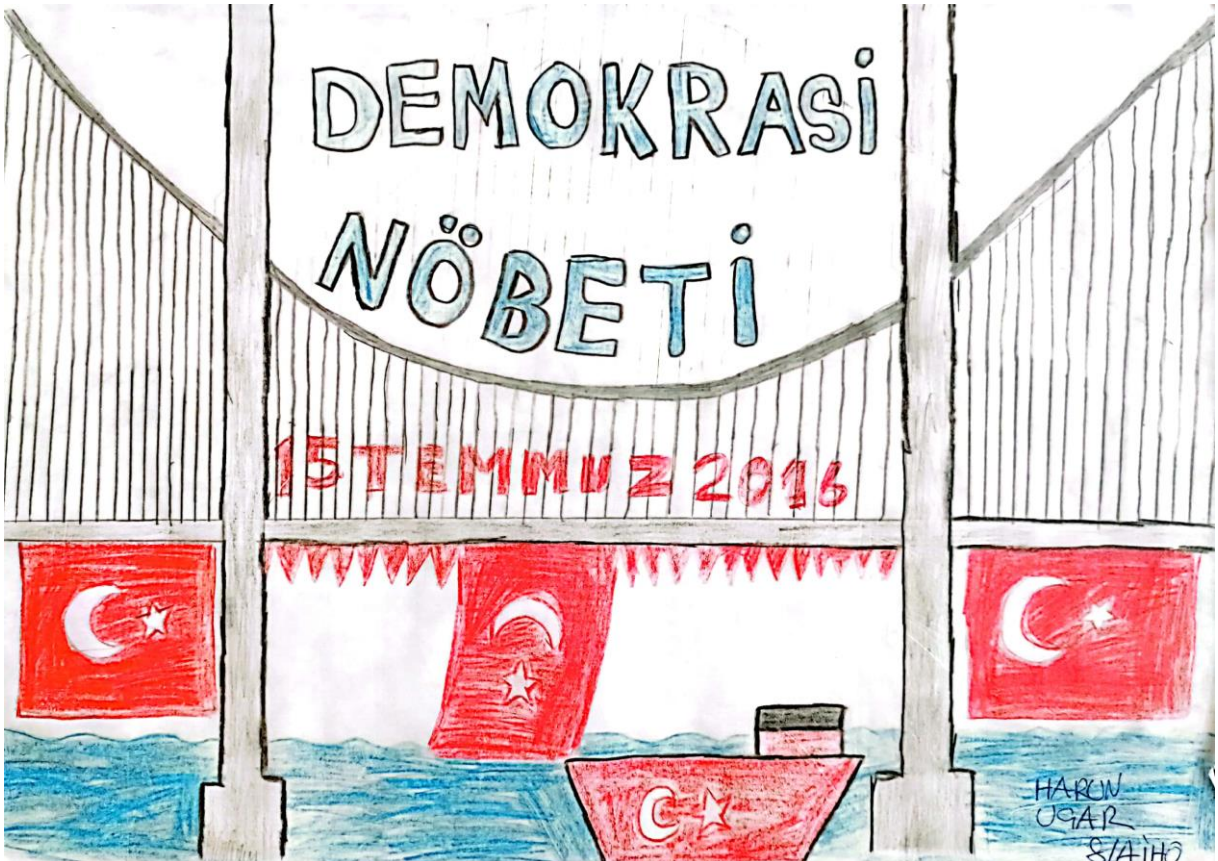 DEMOKRASİ
NÖBETİ
15 TEMMUZ 2016
HARUN
UÇAR
8/A İHO